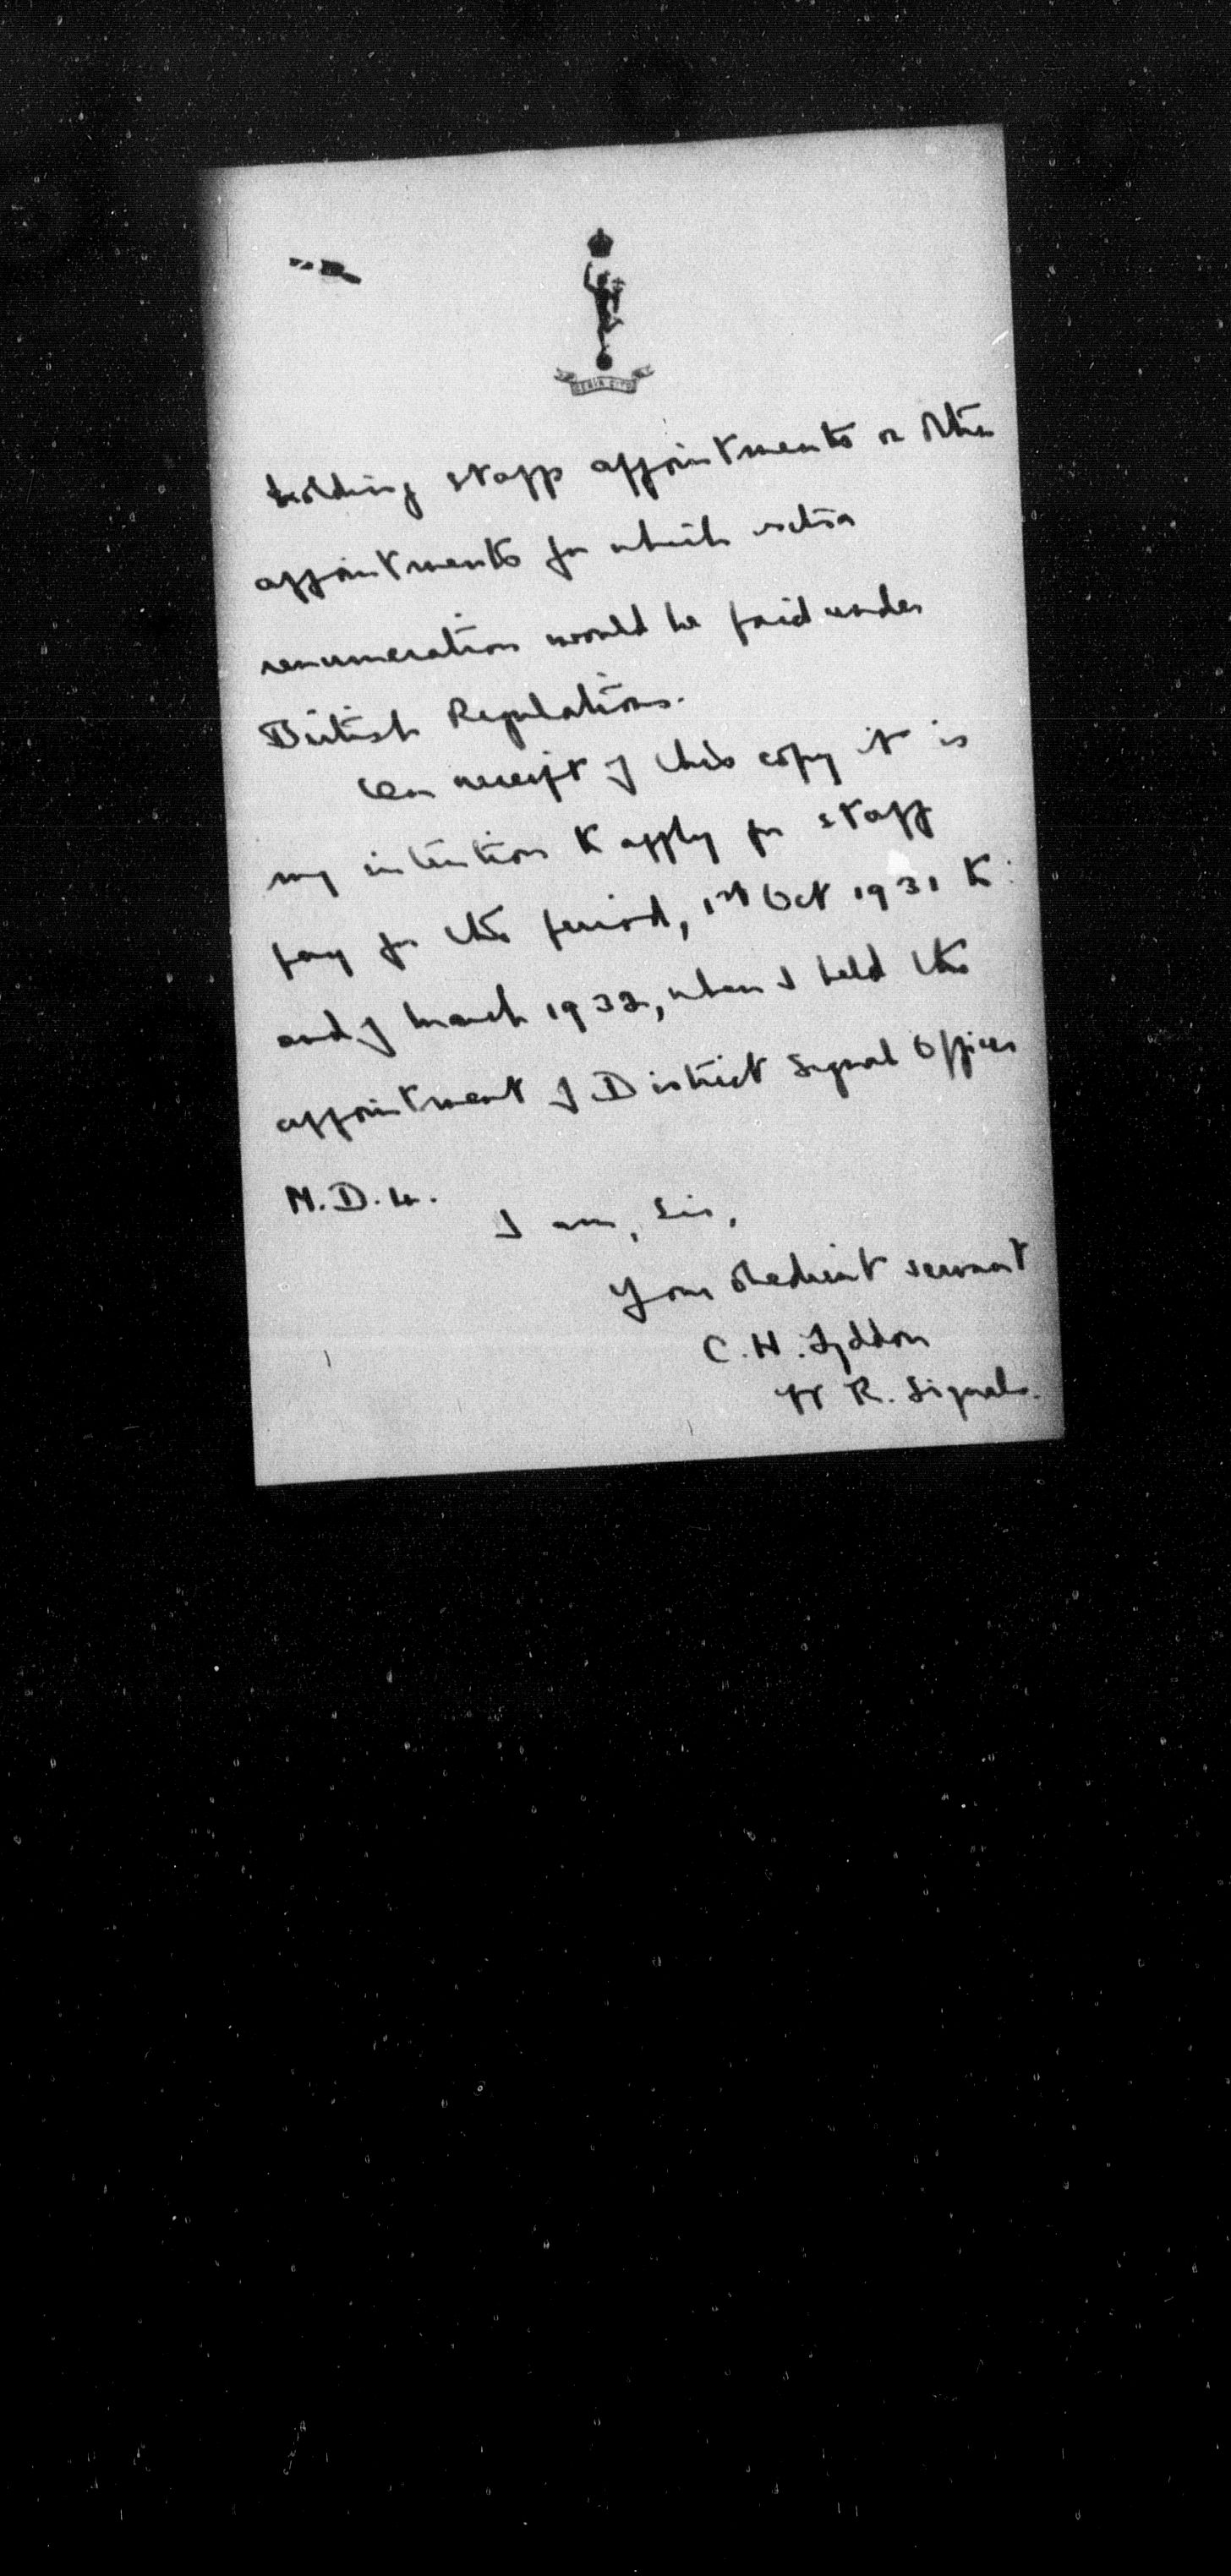 holding staff appointments or other
appointments for which extra
renumeration would be paid under
British Regulations.
On receipt of this copy it is
my intention to apply for staff
pay for the period, 1st Oct 1931 to
end of March 1932, when I held the
appointment of District Signal Officer
M.D.4.
I am, Sir,
Your obedient servant
C.H. Lyddon
Lt R. Signals.